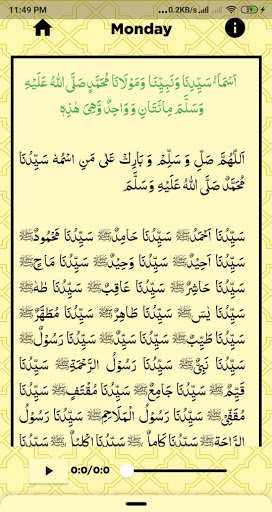 11:49 PM ...0.2KB/s
Monday
اَسْمَآءُ سَيِّدِنَا وَنَبِيِّنَا وَمَوْلَانَا مُحَمَّدٍ صَلَّى اللهُ عَلَيْهِ
وَسَلَّمَ مِائَتَانِ وَوَاحِدٌ وَّهِيَ هٰذِهٖ
اَللّٰهُمَّ صَلِّ وَ سَلِّمْ وَ بَارِكْ عَلٰى مَنِ اسْمُهٗ سَيِّدُنَا
مُحَمَّدٌ صَلَّى اللهُ عَلَيْهِ وَسَلَّمَ
سَيِّدُنَا اَحْمَدُﷺ سَيِّدُنَا حَامِدٌﷺ سَيِّدُنَا مَحْمُوْدٌﷺ
سَيِّدُنَا اَحِيْدٌﷺ سَيِّدُنَا وَحِيْدٌﷺ سَيِّدُنَا مَاحٍﷺ
سَيِّدُنَا حَاشِرٌﷺ سَيِّدُنَا عَاقِبٌﷺ سَيِّدُنَا طٰهٰﷺ
سَيِّدُنَا يٰسٓﷺ سَيِّدُنَا طَاهِرٌﷺ سَيِّدُنَا مُطَهَّرٌﷺ
سَيِّدُنَا طَيِّبٌﷺ سَيِّدُنَا سَيِّدٌﷺ سَيِّدُنَا رَسُوْلٌﷺ
سَيِّدُنَا نَبِيٌّﷺ سَيِّدُنَا رَسُوْلُ الرَّحْمَةِﷺ سَيِّدُنَا
قَيِّمٌﷺ سَيِّدُنَا جَامِعٌﷺ سَيِّدُنَا مُقْتَفٍﷺ سَيِّدُنَا
مُقَفًّىﷺ سَيِّدُنَا رَسُوْلُ الْمَلَاحِمِﷺ سَيِّدُنَا رَسُوْلُ
الرَّاحَةِﷺ سَيِّدُنَا كَامِلٌﷺ سَيِّدُنَا اِكْلِيْلٌﷺ سَيِّدُنَا
0:0/0:0